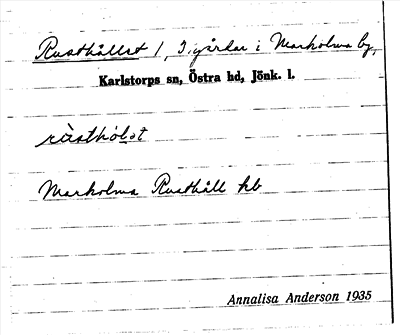 Rusthållet 1, 3, gårdar i Markolma by,
Karlstorps sn, Östra hd, Jönk. l.
Markolma Rusthåll hb
Annalisa Anderson 1935